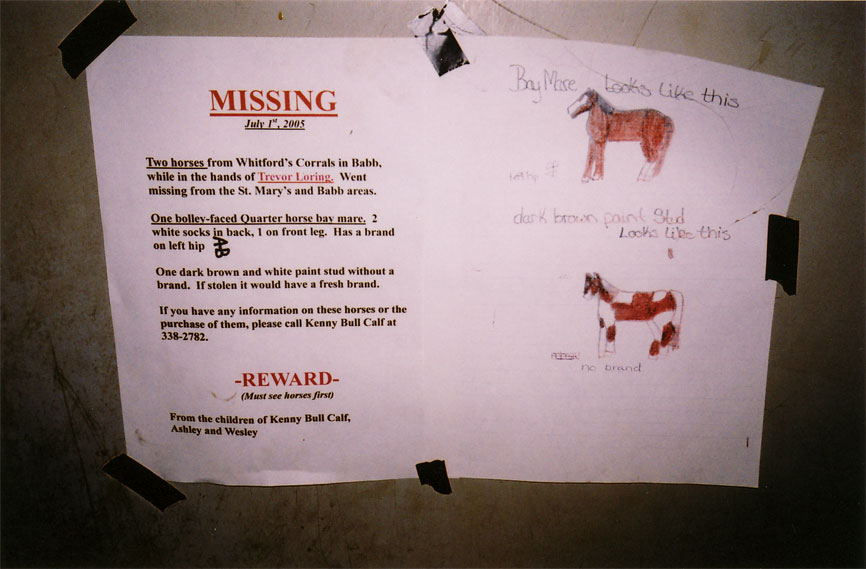 MISSING
July 1st, 2005
Two horses from Whitford's Corrals in Babb,
while in the hands of Trevor Loring. Went
missing from the St. Mary's and Babb areas.
One bolley-faced Quarter horse bay mare. 2
white socks in back, 1 on front leg. Has a brand
on left hip
One dark brown and white paint stud without a
brand. If stolen it would have a fresh brand.
If you have any information on these horses or the
purchase of them, please call Kenny Bull Calf at
338-2782.
-REWARD-
(Must see horses first)
From the children of Kenny Bull Calf,
Ashley and Wesley
Bay Mare Looks Like this
left hip
dark brown paint Stud
Looks Like this
no brand